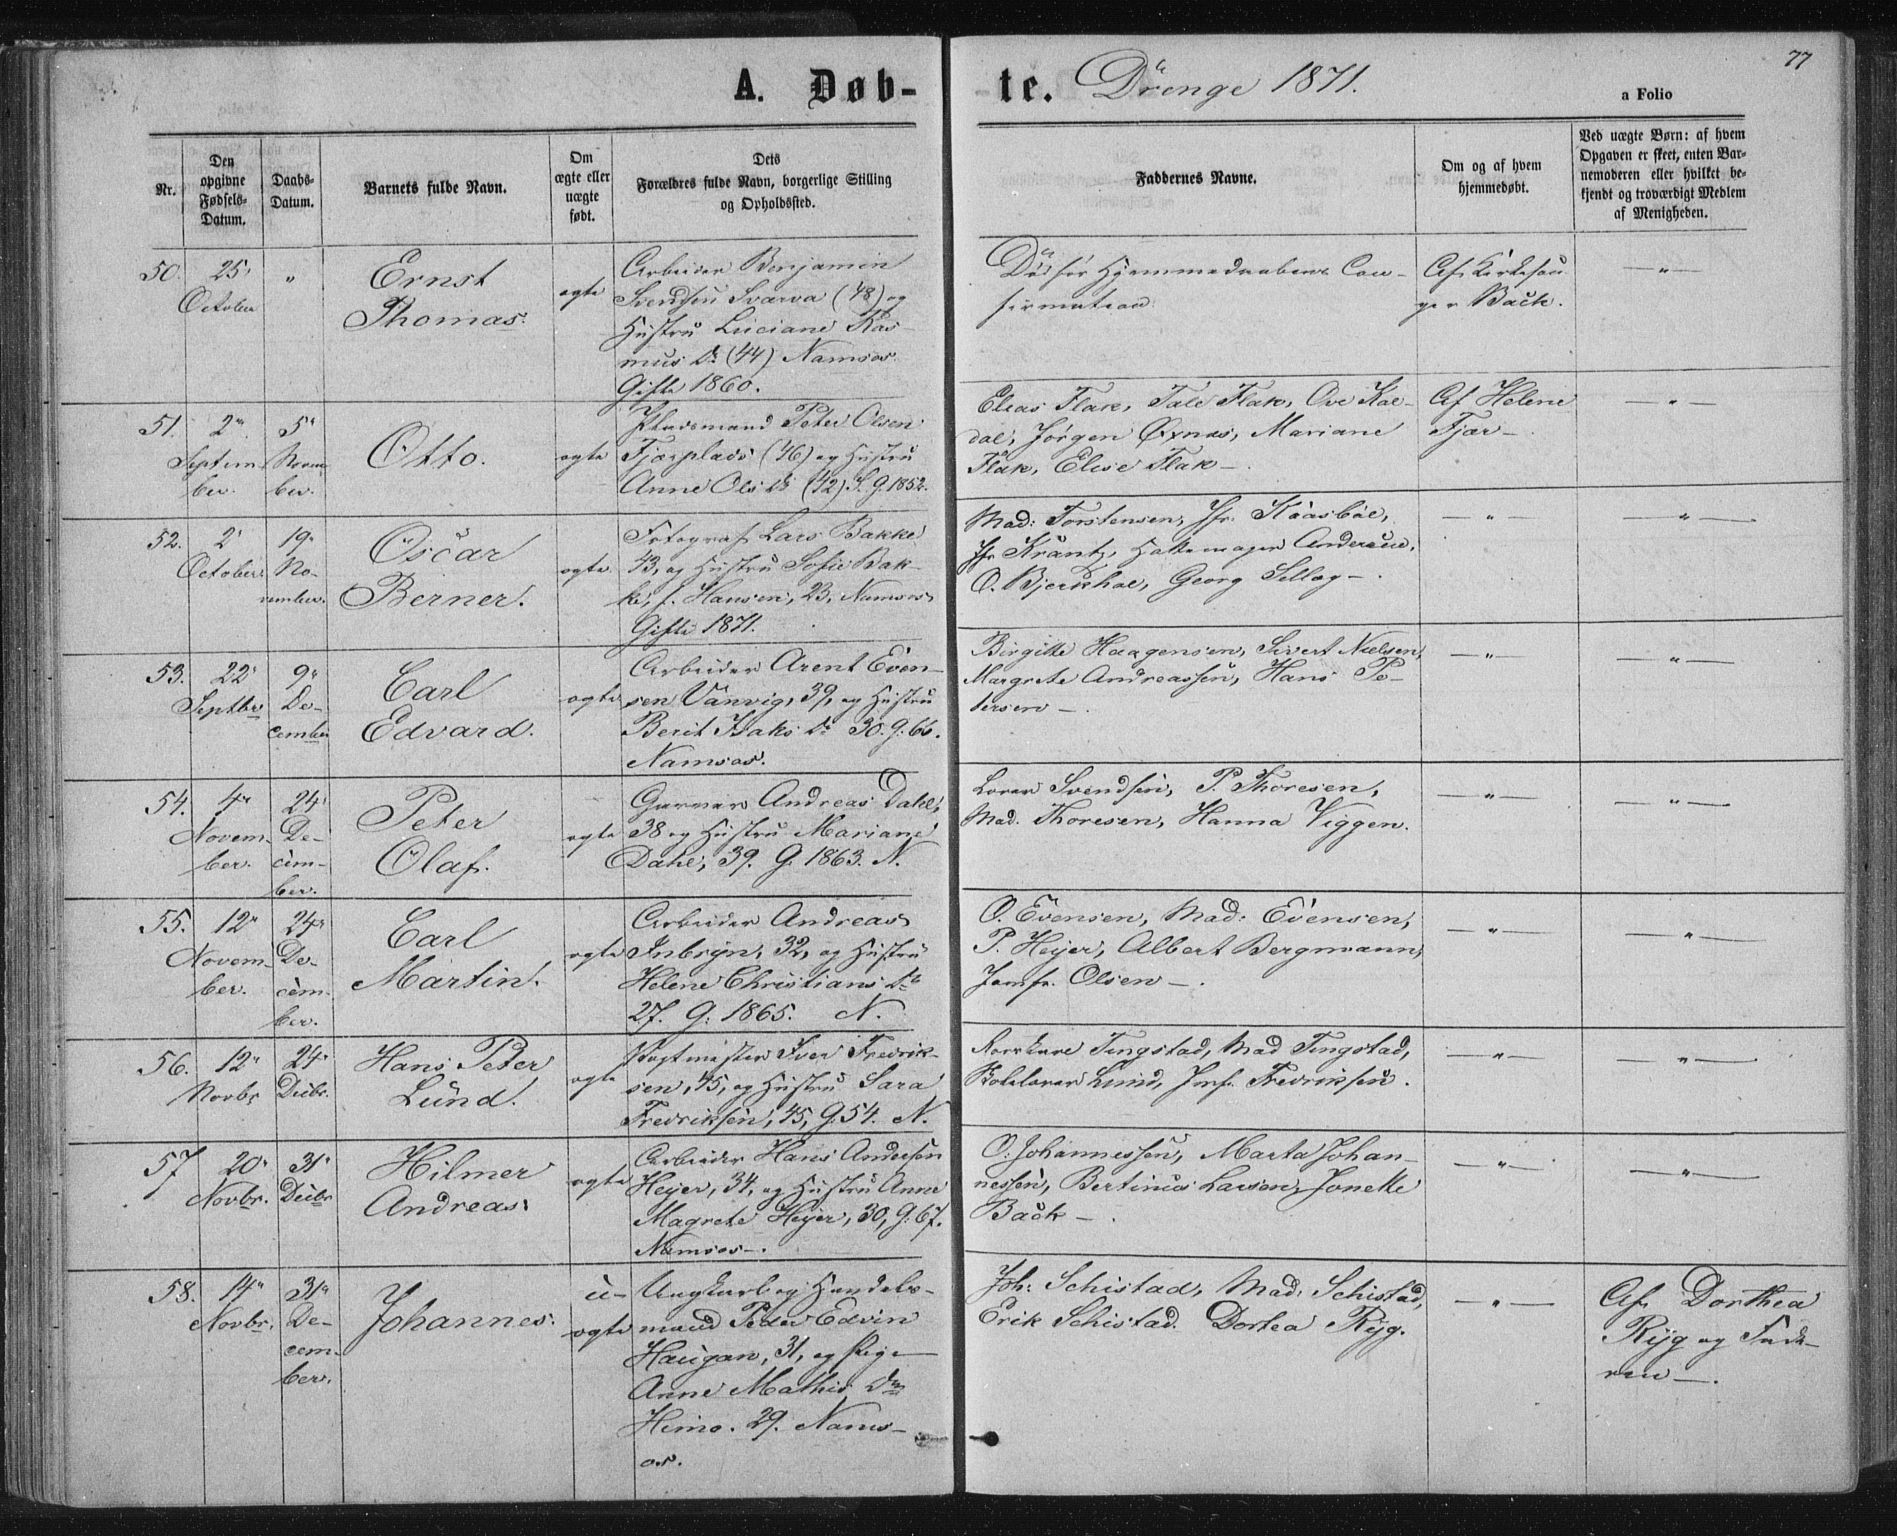 A. Døb-
te. Drenge 1871.
77
a Folio
Nr.
Den
opgivne
Fødsels-
Datum.
Daabs-
Datum.
Barnets fulde Navn.
Om
ægte eller
uægte
født.
Dets
Forældres fulde Navn, borgerlige Stilling
og Opholdssted.
Faddernes Navne.
Om og af hvem
hjemmedøbt.
Ved uægte Børn: af hvem
Opgaven er skeet, enten Bar-
nemoderen eller hvilket be-
kjendt og troværdigt Medlem
af Menigheden.
50.
25"
October
"
Ernst
Thomas.
ægte
Arbeider Benjamin
Svendsen Svarva (48) og
Hustru Luciane Ras-
mus D. (44) Namsos.
Gifte 1860.
Død før Hjemmedaabens Con-
firmation
Af Kirkesan-
ger Back.
— " —
51.
2"
Septem-
ber.
5"
Novem-
ber.
Otto.
ægte
Pladsmand Peter Olsen
Fjærplads (46) og Hustru
Anne Ols D. (42). S. G. 1852.
Elias Flak, Tale Flak, Ove Kal-
dal, Jørgen Øxnes, Mariane
Flak, Elise Flak —.
Af Helene
Fjær —
— " —
52.
2"
October
19"
No-
vember.
Oscar
Berner.
ægte
Fotograf Lars Bakke
43, og Hustru Sofie Bak-
ke, f. Hansen, 23, Namsos
Gifte 1871.
Mad: Torstensen, Jfr. Kaasbøe,
Jfr Krantz, Hattemager Andersen,
O. Bjerkhoe, Georg Sellæg —.
— " —
— " —
53.
22"
Septbr.
9"
De-
cember
Carl
Edvard.
ægte
Arbeider Arent Even-
sen Vanvig, 39, og Hustru
Berit Isaks D. 30. G. 66.
Namsos.
Birgitte Haagensen, Sivert Nielsen,
Margrete Andreassen, Hans Pe-
tersen —.
— " —
— " —
54.
4"
Novem-
ber.
24"
De-
cem-
ber.
Peter
Olaf.
ægte
Garver Andreas Dahl,
38 og Hustru Mariane
Dahl, 39. G. 1863. N.
Lorer Svendsen, P. Thoresen,
Mad. Thoresen, Hanna Viggen.
— " —
— " —
55.
12"
Novem-
ber.
24"
De-
cem-
ber.
Carl
Martin.
ægte
Arbeider Andreas
Inbryn, 32, og Hustru
Helene Christians D.
27. G. 1865. N.
O. Evensen, Mad: Evensen,
P. Heyer, Albert Bergmann,
Jomfr. Olsen —.
— " —
— " —
56.
12"
Novbr
24"
Decbr.
Hans Peter
Lund.
ægte
Vagtmester Iver Fredrik-
sen, 45, og Hustru Sara
Fredriksen, 45, G. 54. N.
Tingstad, Mad Tingstad,
Lund, Jmfr. Fredriksen.
— " —
— " —
57
20"
Novbr.
31"
Decbr
Hilmer
Andreas.
ægte
Arbeider Hans Andersen
Heyer, 34, og Hustru Anne
Magrete Heyer, 30, G. 67.
Namsos —.
O. Johannessen, Marta Johan-
nessen, Bertinus Larsen, Jonette
Back —.
— " —
— " —
58.
14"
Novbr.
31"
De-
cem-
ber.
Johannes.
u-
ægte
Ungkarl og Handels-
mand Peder Edvin
Haugan, 31, og Pige
Anne Mathis D.
Heimo. 29. Nams-
os.
Joh: Schistad, Mad. Schistad,
Erik Schistad. Dortea Ryg.
— " —
Af Dorthea
Ryg og Fade-
ren —.